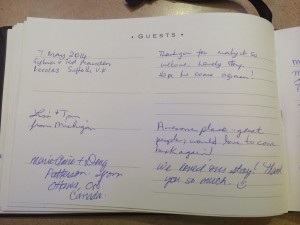 • GUESTS •
7 May 2014
Sylvia + Ted
Beccles Suffolk U.K
Thankyou for making it so
welcome. Lovely stay.
hope to come again!
Lisa + Tim
from Michigan
Awesome place - great
people, would love to come
back again!
Marie-Claire + Doug
Patterson
Ottawa, On
Canada
We loved our stay! Thank
you so much.